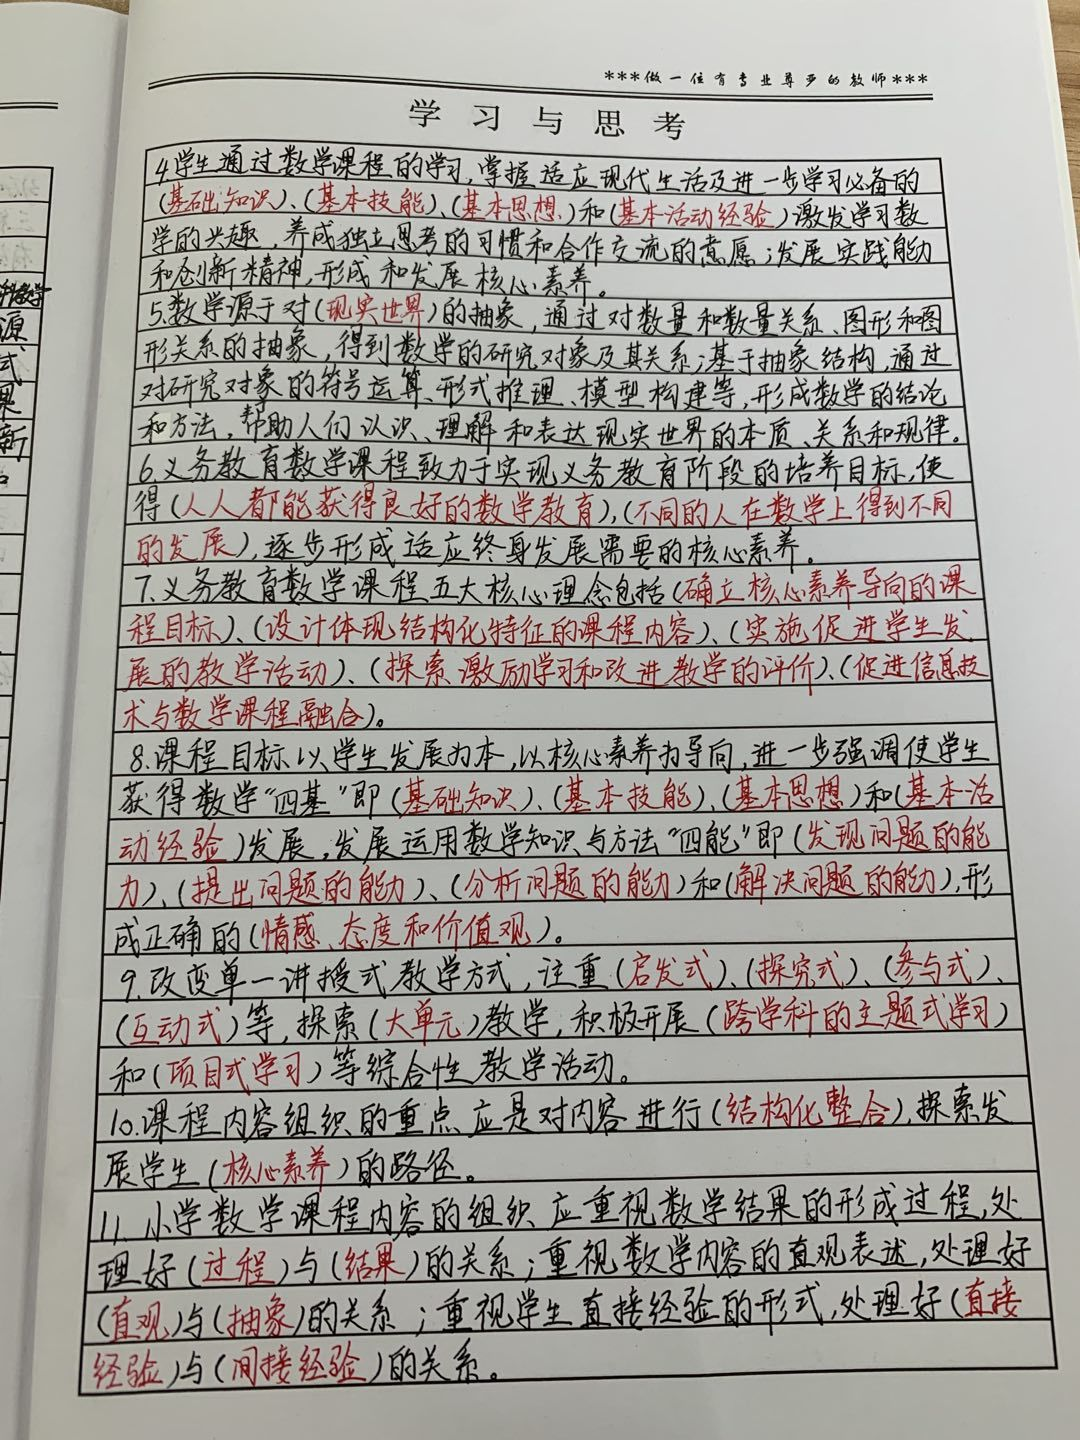 ***做一位有专业尊严的教师***
学习与思考
4.学生通过数学课程的学习,掌握适应现代生活及进一步学习必备的
(基础知识)、(基本技能)、(基本思想)和(基本活动经验)激发学习数
学的兴趣,养成独立思考的习惯和合作交流的意愿;发展实践能力
和创新精神,形成和发展核心素养。
5.数学源于对(现实世界)的抽象,通过对数量和数量关系、图形和图
形关系的抽象,得到数学的研究对象及其关系;基于抽象结构,通过
对研究对象的符号运算、形式推理、模型构建等,形成数学的结论
和方法,帮助人们认识、理解和表达现实世界的本质、关系和规律。
6.义务教育数学课程致力于实现义务教育阶段的培养目标,使
得(人人都能获得良好的数学教育),(不同的人在数学上得到不同
的发展),逐步形成适应终身发展需要的核心素养。
7.义务教育数学课程五大核心理念包括(确立核心素养导向的课
程目标)、(设计体现结构化特征的课程内容)、(实施促进学生发
展的教学活动)、(探索激励学习和改进教学的评价)、(促进信息技
术与数学课程融合)。
8.课程目标以学生发展为本,以核心素养为导向,进一步强调使学生
获得数学“四基”即(基础知识)、(基本技能)、(基本思想)和(基本活
动经验)发展,发展运用数学知识与方法“四能”即(发现问题的能
力)、(提出问题的能力)、(分析问题的能力)和(解决问题的能力),形
成正确的(情感、态度和价值观)。
9.改变单一讲授式教学方式,注重(启发式)、(探究式)、(参与式)、
(互动式)等,探索(大单元)教学,积极开展(跨学科的主题式学习)
和(项目式学习)等综合性教学活动。
10.课程内容组织的重点应是对内容进行(结构化整合),探索发
展学生(核心素养)的路径。
11.小学数学课程内容的组织应重视数学结果的形成过程,处
理好(过程)与(结果)的关系;重视数学内容的直观表述,处理好
(直观)与(抽象)的关系;重视学生直接经验的形式,处理好(直接
经验)与(间接经验)的关系。